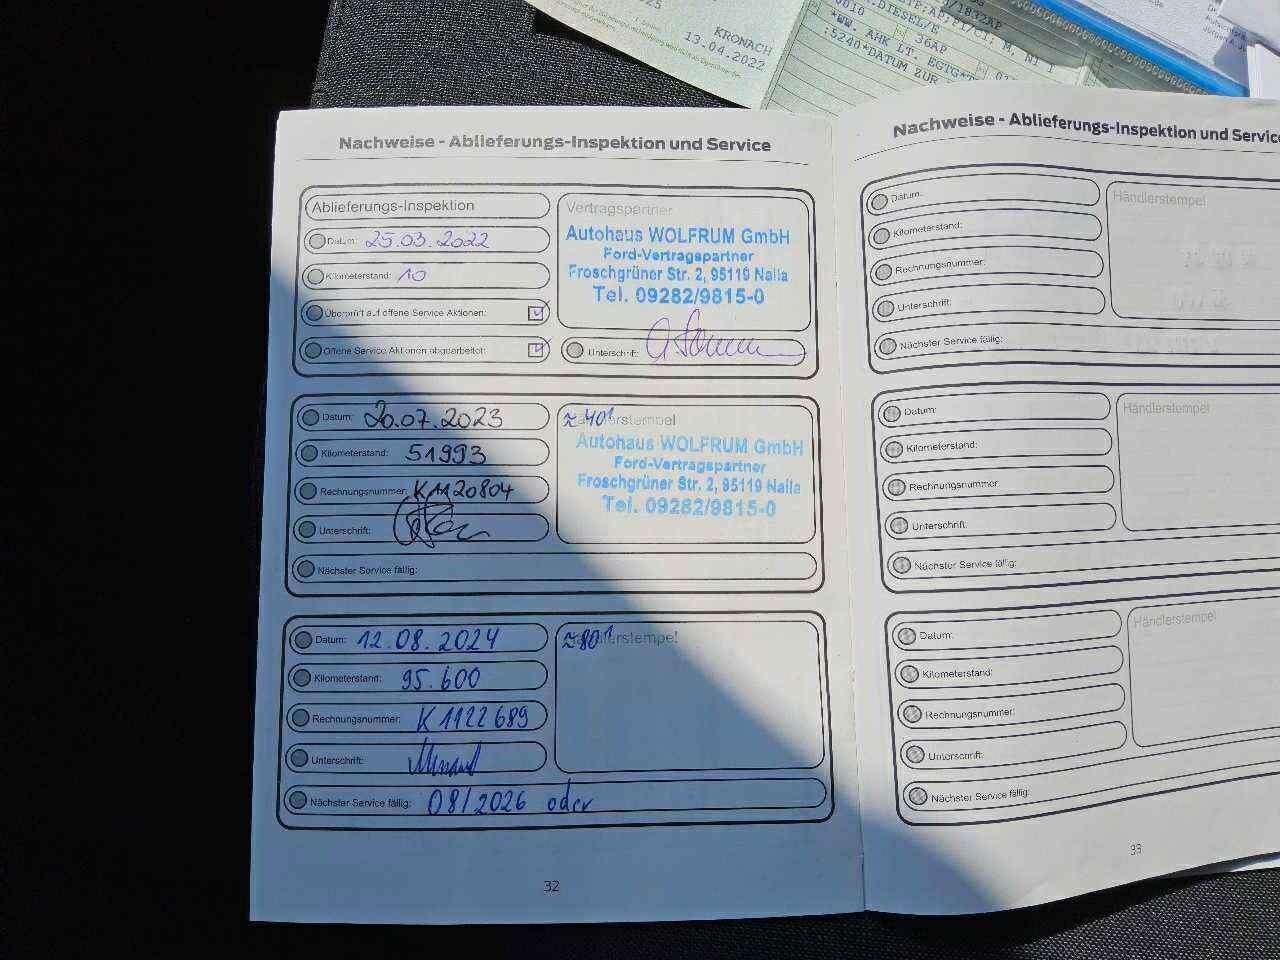 KRONACH
13.04.2022
0010
36AP
*WW. AHK LT. EGTG*
:5240*DATUM ZUR
Nachweise - Ablieferungs-Inspektion und Service
Ablieferungs-Inspektion
Datum: 25.03.2022
Kilometerstand: 10
Überprüft auf offene Service Aktionen:
Offene Service Aktionen abgearbeitet:
Vertragspartner
Autohaus WOLFRUM GmbH
Ford-Vertragspartner
Froschgrüner Str. 2, 95119 Naila
Tel. 09282/9815-0
Unterschrift:
Datum: 20.07.2023
Kilometerstand: 51993
Rechnungsnummer: K1120804
Unterschrift:
Nächster Service fällig:
Händlerstempel
Autohaus WOLFRUM GmbH
Ford-Vertragspartner
Froschgrüner Str. 2, 95119 Naila
Tel. 09282/9815-0
Datum: 12.08.2024
Kilometerstand: 95.600
Rechnungsnummer: K1122689
Unterschrift:
Nächster Service fällig: 08/2026 oder
Händlerstempel
32
Nachweise - Ablieferungs-Inspektion und Service
Datum:
Kilometerstand:
Rechnungsnummer:
Unterschrift:
Nächster Service fällig:
Händlerstempel
Datum:
Kilometerstand:
Rechnungsnummer:
Unterschrift:
Nächster Service fällig:
Händlerstempel
Datum:
Kilometerstand:
Rechnungsnummer:
Unterschrift:
Nächster Service fällig:
Händlerstempel
33